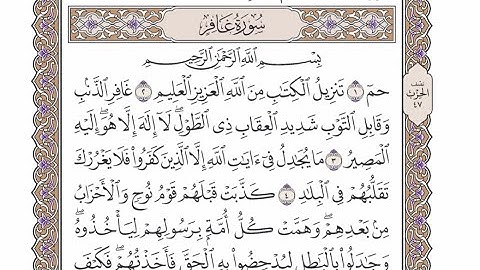 سُورَةُ غَافِرٍ
بِسْمِ ٱللَّهِ ٱلرَّحْمَٰنِ ٱلرَّحِيمِ
حمٓ ١ تَنزِيلُ ٱلْكِتَٰبِ مِنَ ٱللَّهِ ٱلْعَزِيزِ ٱلْعَلِيمِ ٢ غَافِرِ ٱلذَّنۢبِ
وَقَابِلِ ٱلتَّوْبِ شَدِيدِ ٱلْعِقَابِ ذِى ٱلطَّوْلِۖ لَآ إِلَٰهَ إِلَّا هُوَۖ إِلَيْهِ
ٱلْمَصِيرُ ٣ مَا يُجَٰدِلُ فِىٓ ءَايَٰتِ ٱللَّهِ إِلَّا ٱلَّذِينَ كَفَرُوا۟ فَلَا يَغْرُرْكَ
تَقَلُّبُهُمْ فِى ٱلْبِلَٰدِ ٤ كَذَّبَتْ قَبْلَهُمْ قَوْمُ نُوحٍ وَٱلْأَحْزَابُ
مِنۢ بَعْدِهِمْۖ وَهَمَّتْ كُلُّ أُمَّةٍۭ بِرَسُولِهِمْ لِيَأْخُذُوهُۖ
وَجَٰدَلُوا۟ بِٱلْبَٰطِلِ لِيُدْحِضُوا۟ بِهِ ٱلْحَقَّ فَأَخَذْتُهُمْۖ فَكَيْفَ
نصف
الحزب
٤٧